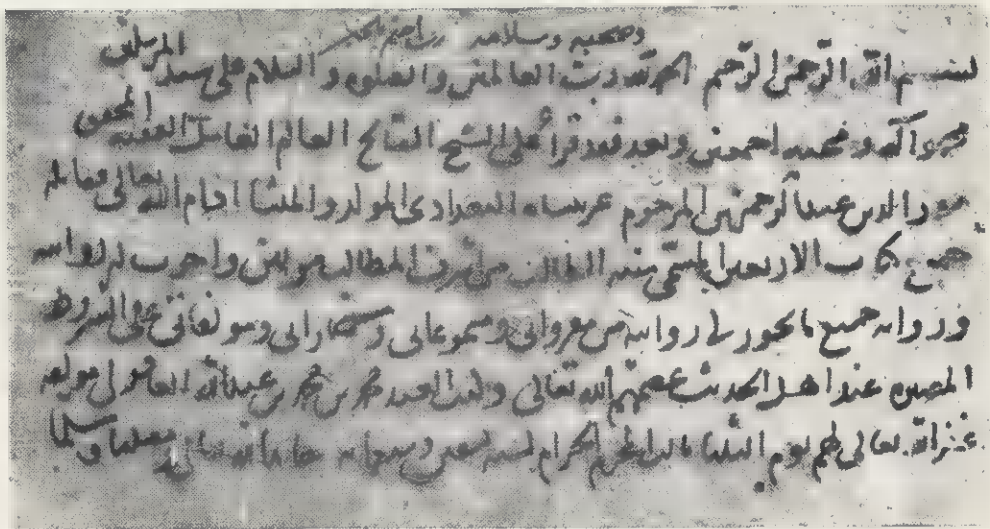 وصحبه وسلامه
بسم الله الرحمن الرحيم الحمد لله رب العالمين والصلوة والسلام على سيد المرسلين
محمد وآله وصحبه اجمعين وبعد فقد قرأ على الشيخ الصالح العالم الفاضل الفقيه المحقق
الدين عبد الرحمن بن المرحوم عربشاه البغدادى المولد والمنشأ ادام الله تعالى
جميع كتاب الاربعين المسمى الطالب من اشرف المطالب مرتين واجزت له روايته
ورواية جميع ما يجوز لى روايته من مقرواتى ومسموعاتى ومستجازاتى ومولفاتى على الشروط
المعتبره عند اهل الحديث عصمهم الله تعالى وكتب العبد محمد بن محمد بن عبد الله العاقولى مولفه
غفر الله تعالى لهم يوم الثلثا المحرم الحرام لسنه وسبعمايه حامدا لله تعالى ومصليا ومسلما